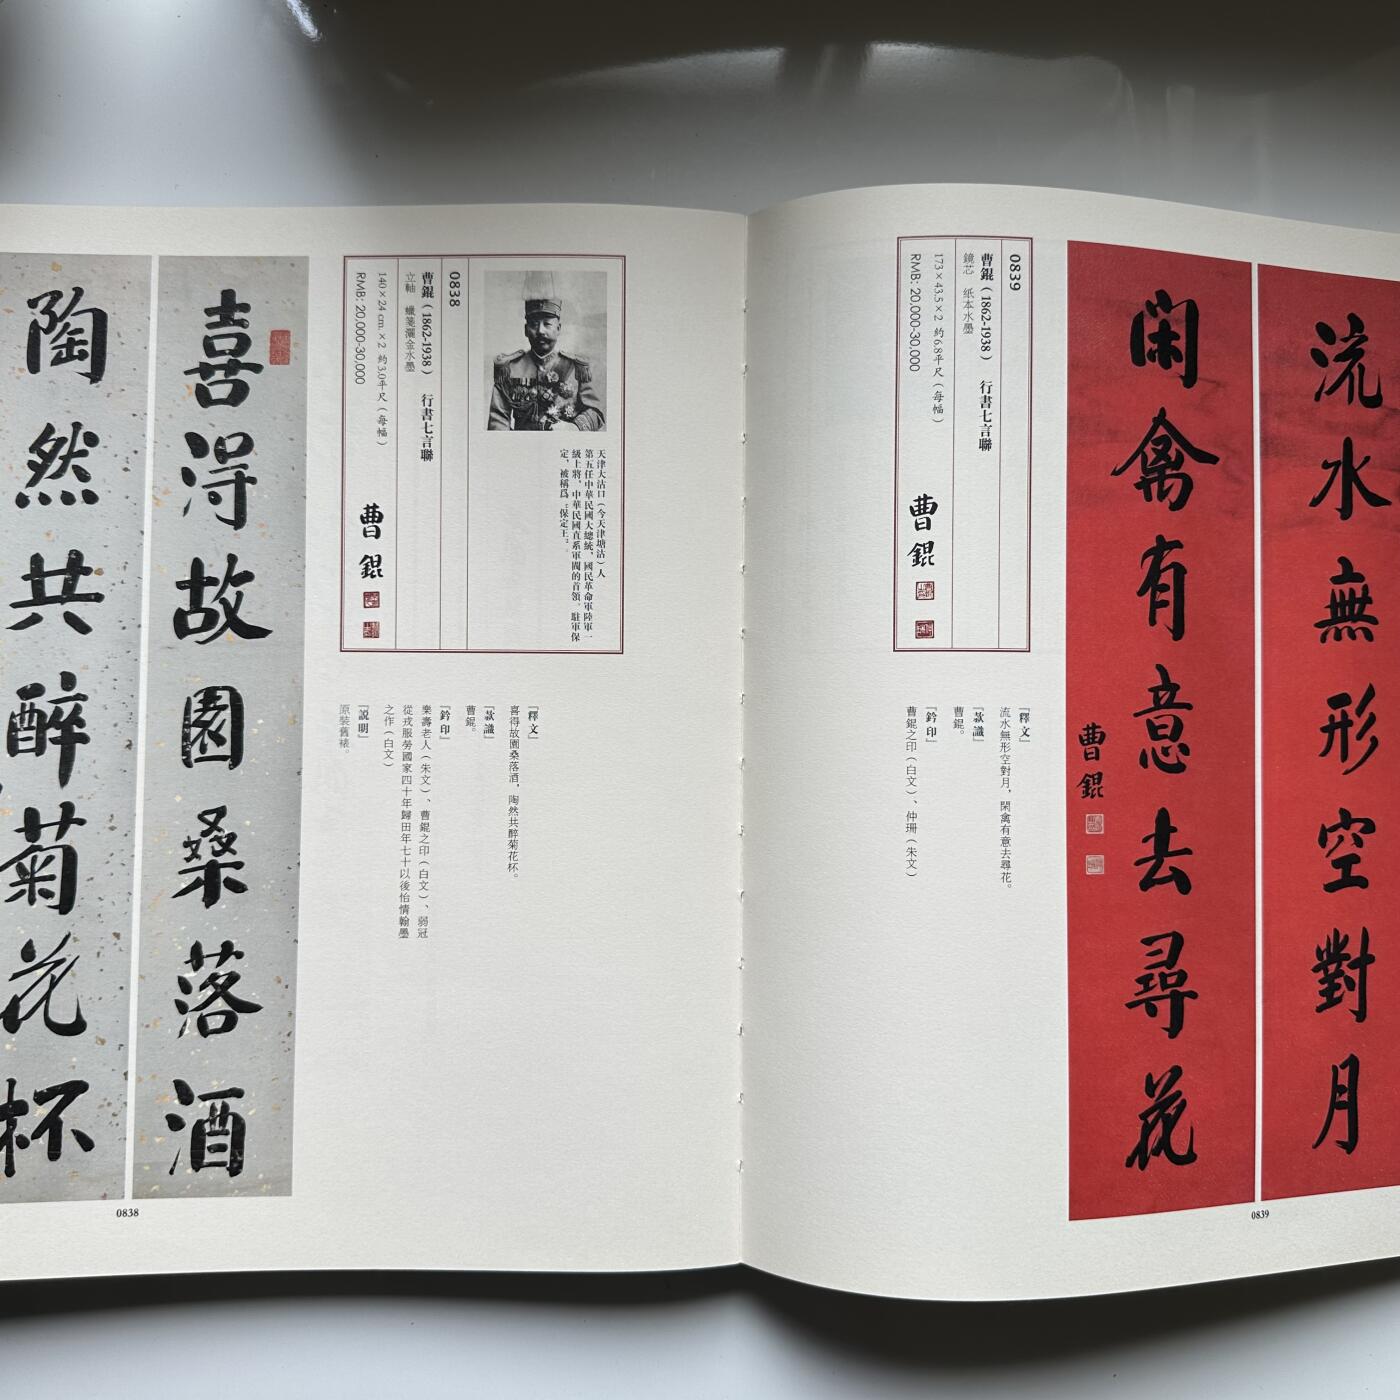 喜得故園桑落酒
陶然共醉菊花杯
0838
天津大沽口（今天津塘沽）人
第五任中華民國大總統，國民革命軍陸軍一
級上將，中華民國直系軍閥的首領。駐軍保
定，被稱爲“保定王”。
0838
曹錕（1862-1938）　行書七言聯
立軸　蠟箋灑金水墨
140×24 cm.×2 約3.0平尺（每幅）
RMB: 20,000-30,000
曹錕
『釋文』
喜得故園桑落酒，陶然共醉菊花杯。
『款識』
曹錕。
『鈐印』
樂壽老人（朱文）、曹錕之印（白文）、弱冠
從戎服勞國家四十年歸田年七十以後怡情翰墨
之作（白文）
『説明』
原裝舊裱。
流水無形空對月
閑禽有意去尋花
曹錕
0839
0839
曹錕（1862-1938）　行書七言聯
鏡芯　紙本水墨
173×43.5×2 約6.8平尺（每幅）
RMB: 20,000-30,000
曹錕
『釋文』
流水無形空對月，閑禽有意去尋花。
『款識』
曹錕。
『鈐印』
曹錕之印（白文）、仲珊（朱文）